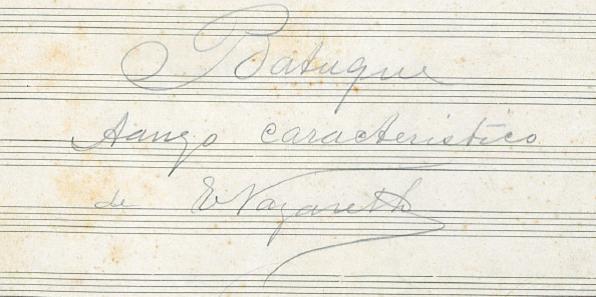 Batuque
Tango caracteristico
de E Nazareth